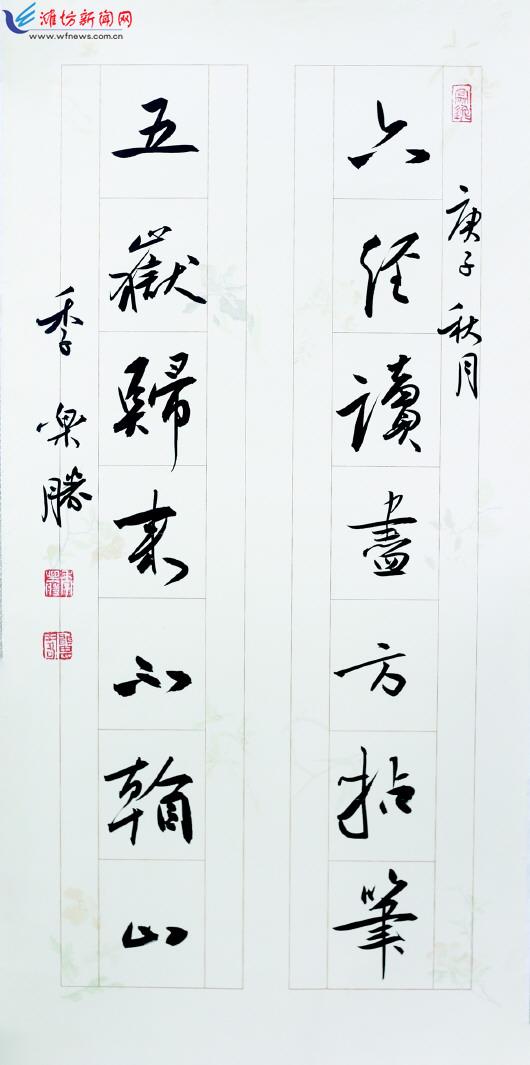 潍坊新闻网
www.wfnews.com.cn
庚子秋月
六经讀盡方拈筆
五嶽歸来不看山
季樂勝